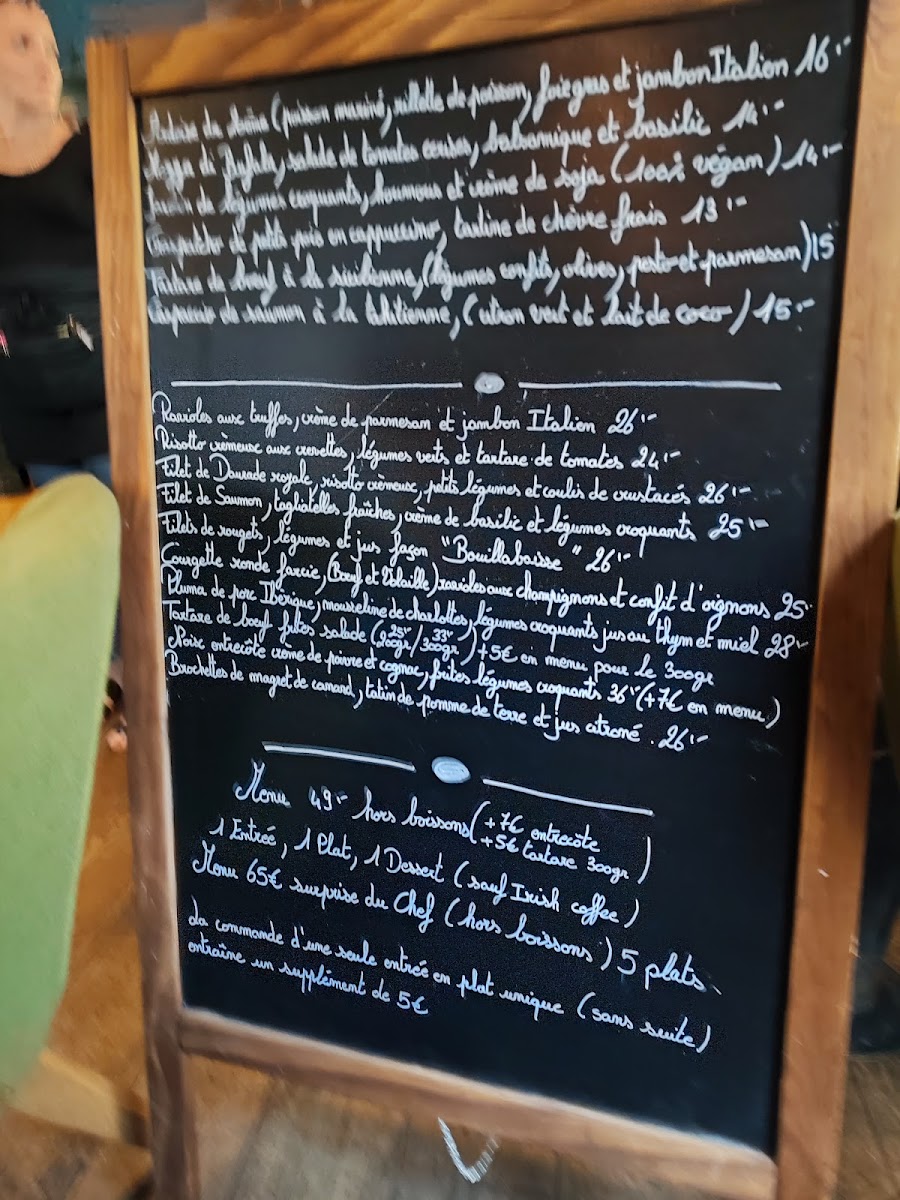 Ardoise du (poisson mariné, rillette de poisson, foie gras et jambon Italien 16.-
di Bufala, salade de tomates cerises, balsamique et basilic 14.-
de légumes croquants, houmous et crème de soja (100% végan) 14.-
Gaspatcho de petits pois en cappuccino, tartine de chèvre frais 13.-
Tartare de bœuf à la sicilienne, (légumes confits, olives, pesto et parmesan) 15
de saumon à la tahitienne, (citron vert et lait de coco) 15.-
Ravioles aux truffes, crème de parmesan et jambon Italien 26.-
Risotto crèmeux aux crevettes, légumes verts et tartare de tomates 24.-
Filet de Daurade royale, risotto crèmeux, petits légumes et coulis de crustacés 26.-
Filet de Saumon, tagliatelles fraîches, crème de basilic et légumes croquants 25.-
Filets de rougets, légumes et jus façon "Bouillabaisse" 26.-
Courgette ronde farcie, (Bœuf et Volaille) ravioles aux champignons et confit d'oignons 25.-
Pluma de porc Ibérique, mousseline de charlotte, légumes croquants jus au thym et miel 28.-
Tartare de bœuf frites salade (25.- 200gr / 33.- 300gr) +5€ en menu pour le 300gr
Noix entrecôte crème de poivre et cognac, frites légumes croquants 36.- (+7€ en menu)
Brochettes de magret de canard, tatin de pomme de terre et jus citroné . 26.-
Menu 49.- hors boissons (+7€ entrecôte
+5€ tartare 300gr)
1 Entrée, 1 Plat, 1 Dessert (sauf Irish coffee)
Menu 65€ surprise du Chef (hors boissons) 5 plats.
La commande d'une seule entrée en plat unique (sans suite)
entraîne un supplément de 5€